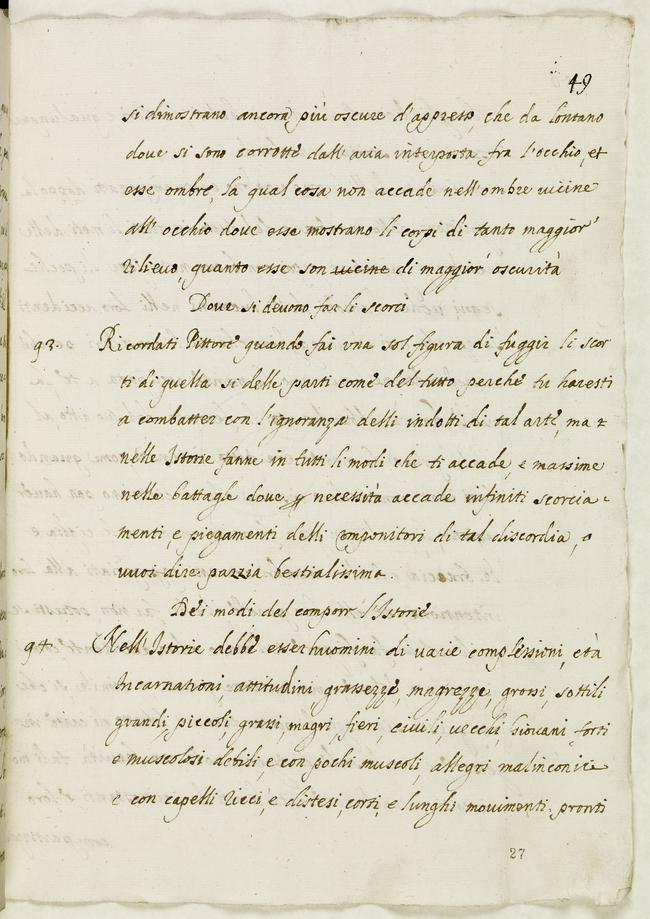 49
si dimostrano ancora più oscure d'appresso, che da lontano
dove si sono corrotte dall'aria interposta fra l'occhio, et
esse ombre, la qual cosa non accade nell'ombre vicine
all'occhio dove esse mostrano li corpi di tanto maggior
rilievo, quanto esse son vicine di maggior oscurità
Dove si devono far li scorci
93. Ricordati Pittore quando fai una sol figura di fuggir li scor
ti di quella si delle parti come del tutto perche tu haresti
a combatter con l'ignoranza delli indotti di tal arte, ma
nelle Istorie fanne in tutti li modi che ti accade, e massime
nelle battagle dove necessità accade infiniti scorcia-
menti, e piegamenti delli componitori di tal discordia, o
vuoi dire pazzia bestialissima.
Dei modi del comporr l'Istorie
94. Nell'Istorie debbe esser huomini di varie complessioni, età
Incarnationi, attitudini grassezze, magrezze, grossi, sottili
grandi, piccoli, grassi, magri, fieri, civili, vecchi, Giovani forti
e muscolosi debili, e con pochi muscoli, allegri malinconici
e con capelli ricci, e distesi, corti, e lunghi movimenti pronti
27